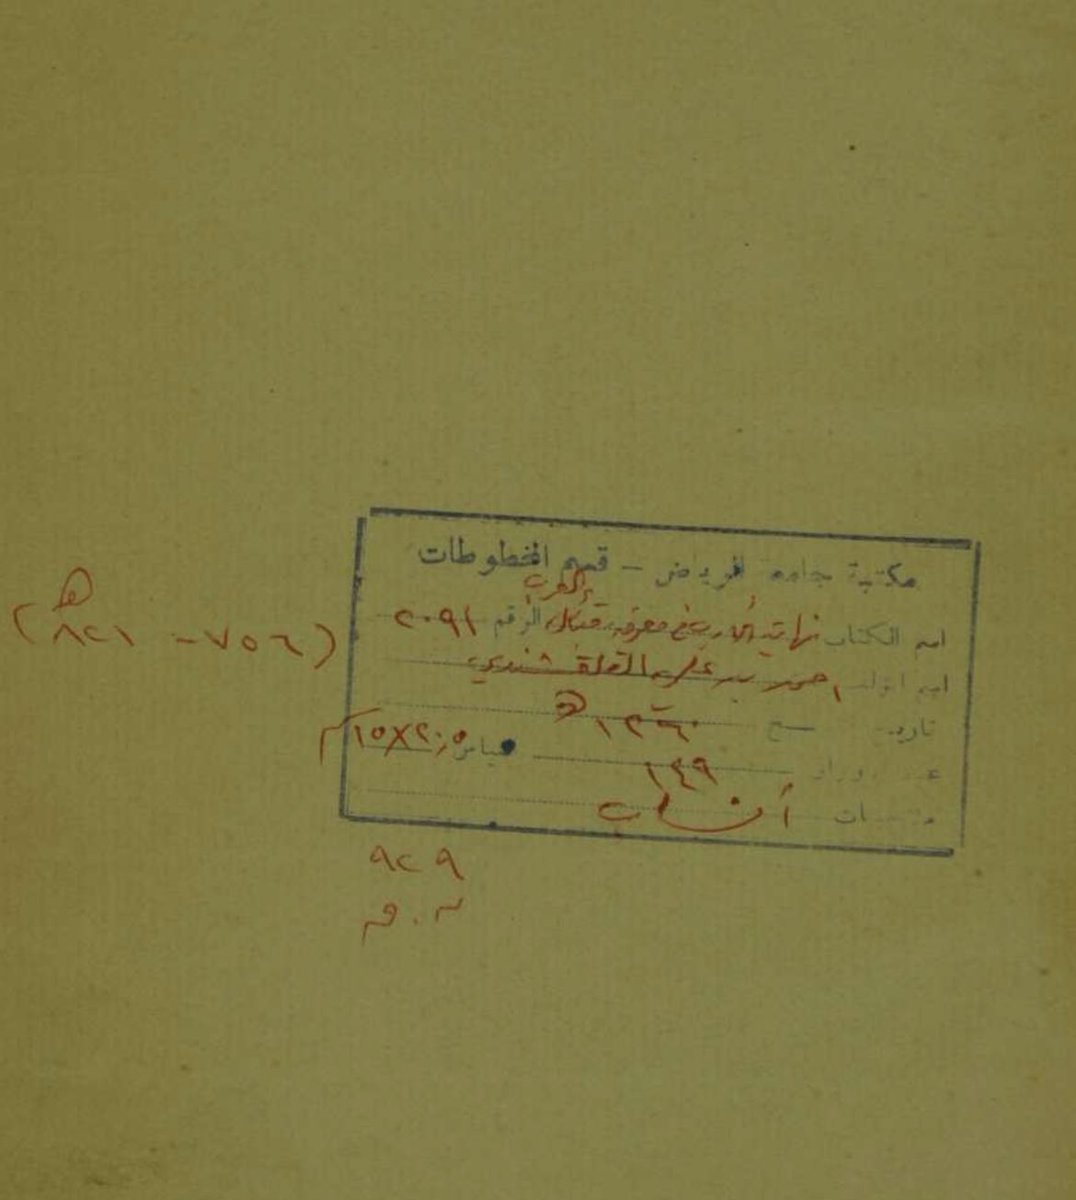 مكتبة جامعة الرياض - قسم المخطوطات
اسم الكتاب نهاية الأرب في معرفة قبائل العرب الرقم ٢٠٩١
اسم المؤلف احمد بن علي القلقشندي (٧٥٦ - ٨٢١ هـ)
تاريخ النسخ ١٢٩٠ هـ
عدد الأوراق ١٤٩ قياس ٢٠٫٥×١٥ سم
أنساب
٩٢٩